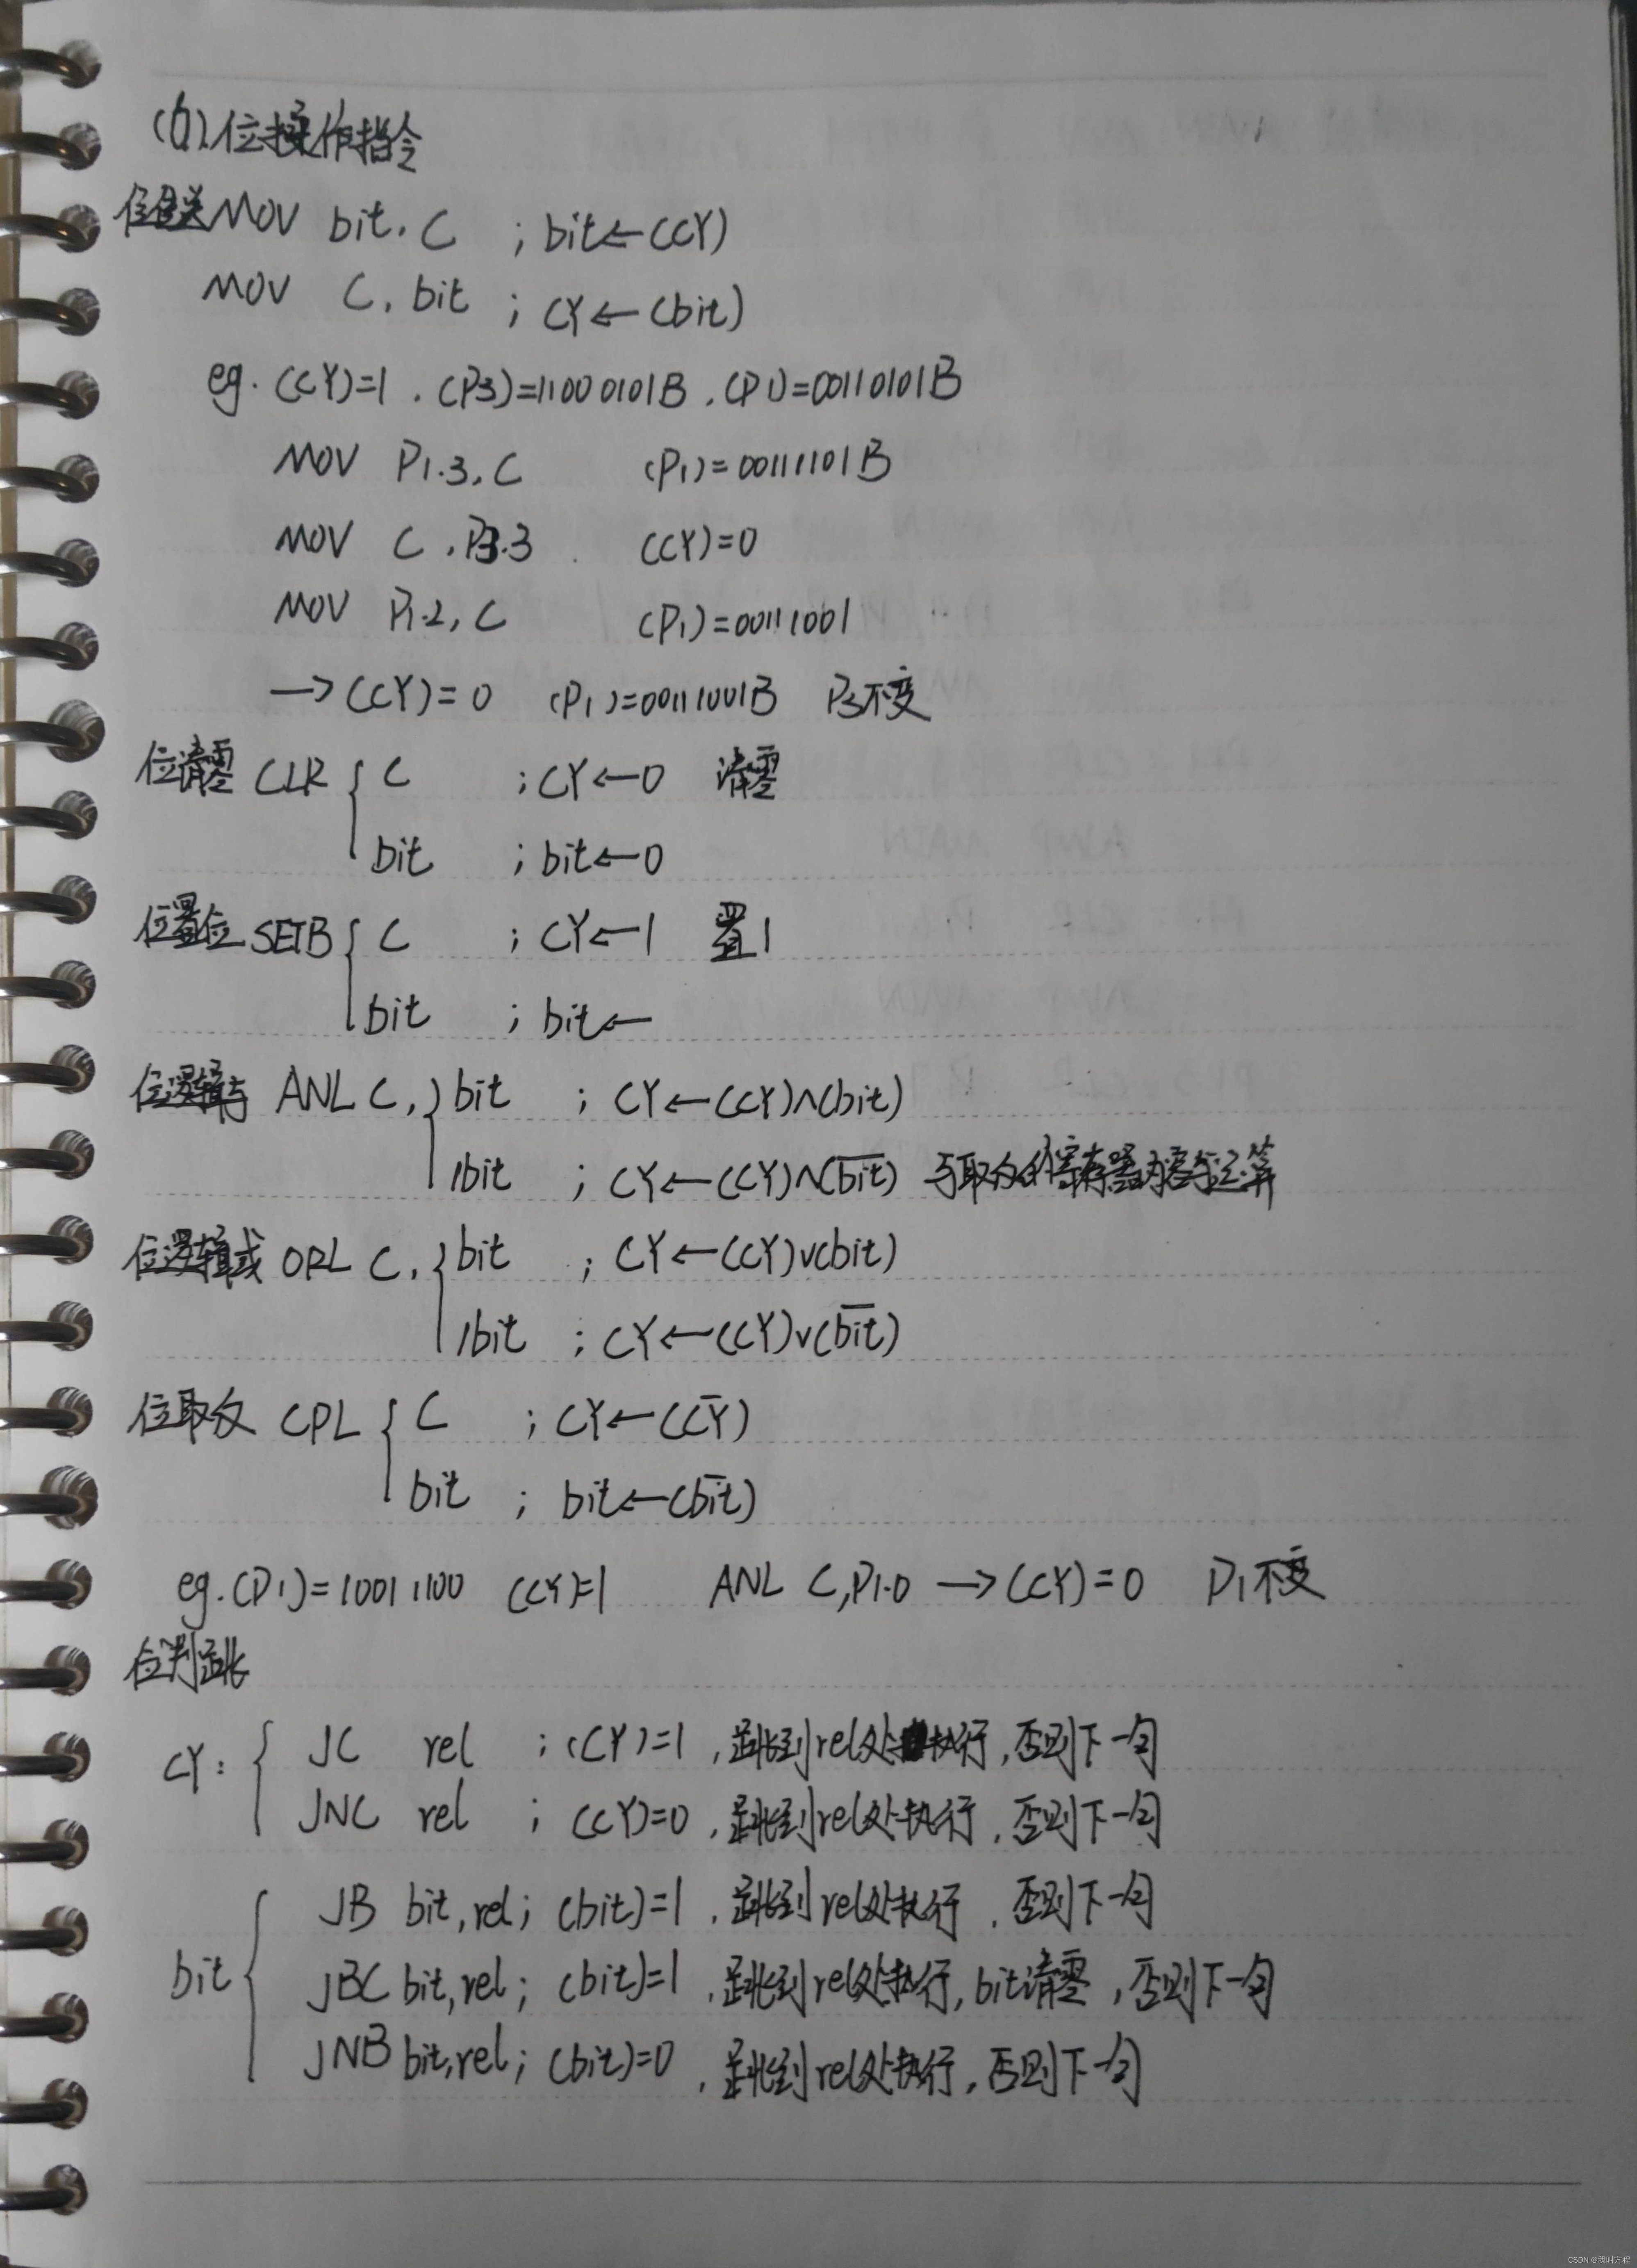 (6).位操作指令
位传送 MOV bit, C ; bit←(CY)
MOV C, bit ; CY←(bit)
eg. (CY)=1 , (P3)=11000101B , (P1)=00110101B
MOV P1.3, C (P1)=00111101B
MOV C, P3.3 (CY)=0
MOV P1.2, C (P1)=00111001
→(CY)=0 (P1)=00111001B P3不变
位清零 CLR { C ; CY←0 清零
bit ; bit←0
位置位 SETB { C ; CY←1 置1
bit ; bit←
位逻辑与 ANL C, { bit ; CY←(CY)∧(bit)
/bit ; CY←(CY)∧(b̅i̅t̅) 与取反的寄存器内容与运算
位逻辑或 ORL C, { bit ; CY←(CY)∨(bit)
/bit ; CY←(CY)∨(b̅i̅t̅)
位取反 CPL { C ; CY←(C̅Y̅)
bit ; bit←(b̅i̅t̅)
eg. (P1)=10011100 (CY)=1 ANL C, P1.0 →(CY)=0 P1不变
位判跳
CY: { JC rel ; (CY)=1 , 跳到rel处执行, 否则下一句
JNC rel ; (CY)=0 , 跳到rel处执行, 否则下一句
bit { JB bit, rel ; (bit)=1 , 跳到rel处执行, 否则下一句
JBC bit, rel ; (bit)=1 , 跳到rel处执行, bit清零, 否则下一句
JNB bit, rel ; (bit)=0 , 跳到rel处执行, 否则下一句
CSDN @我叫方程